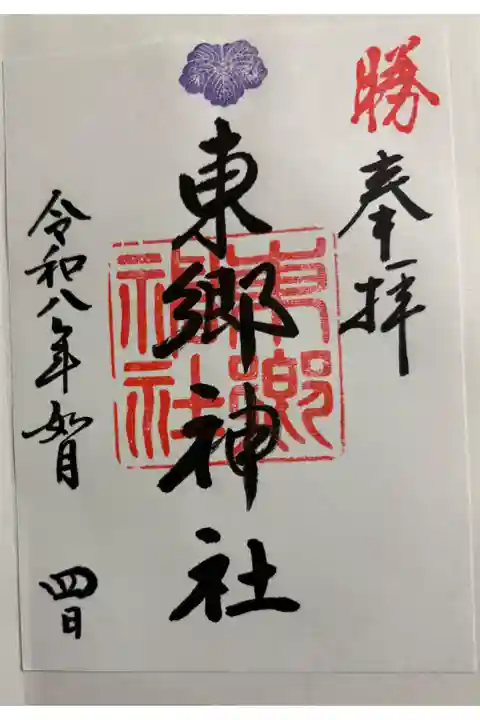 勝
奉拝
東郷神社
東郷
神社
令和八年如月 四日